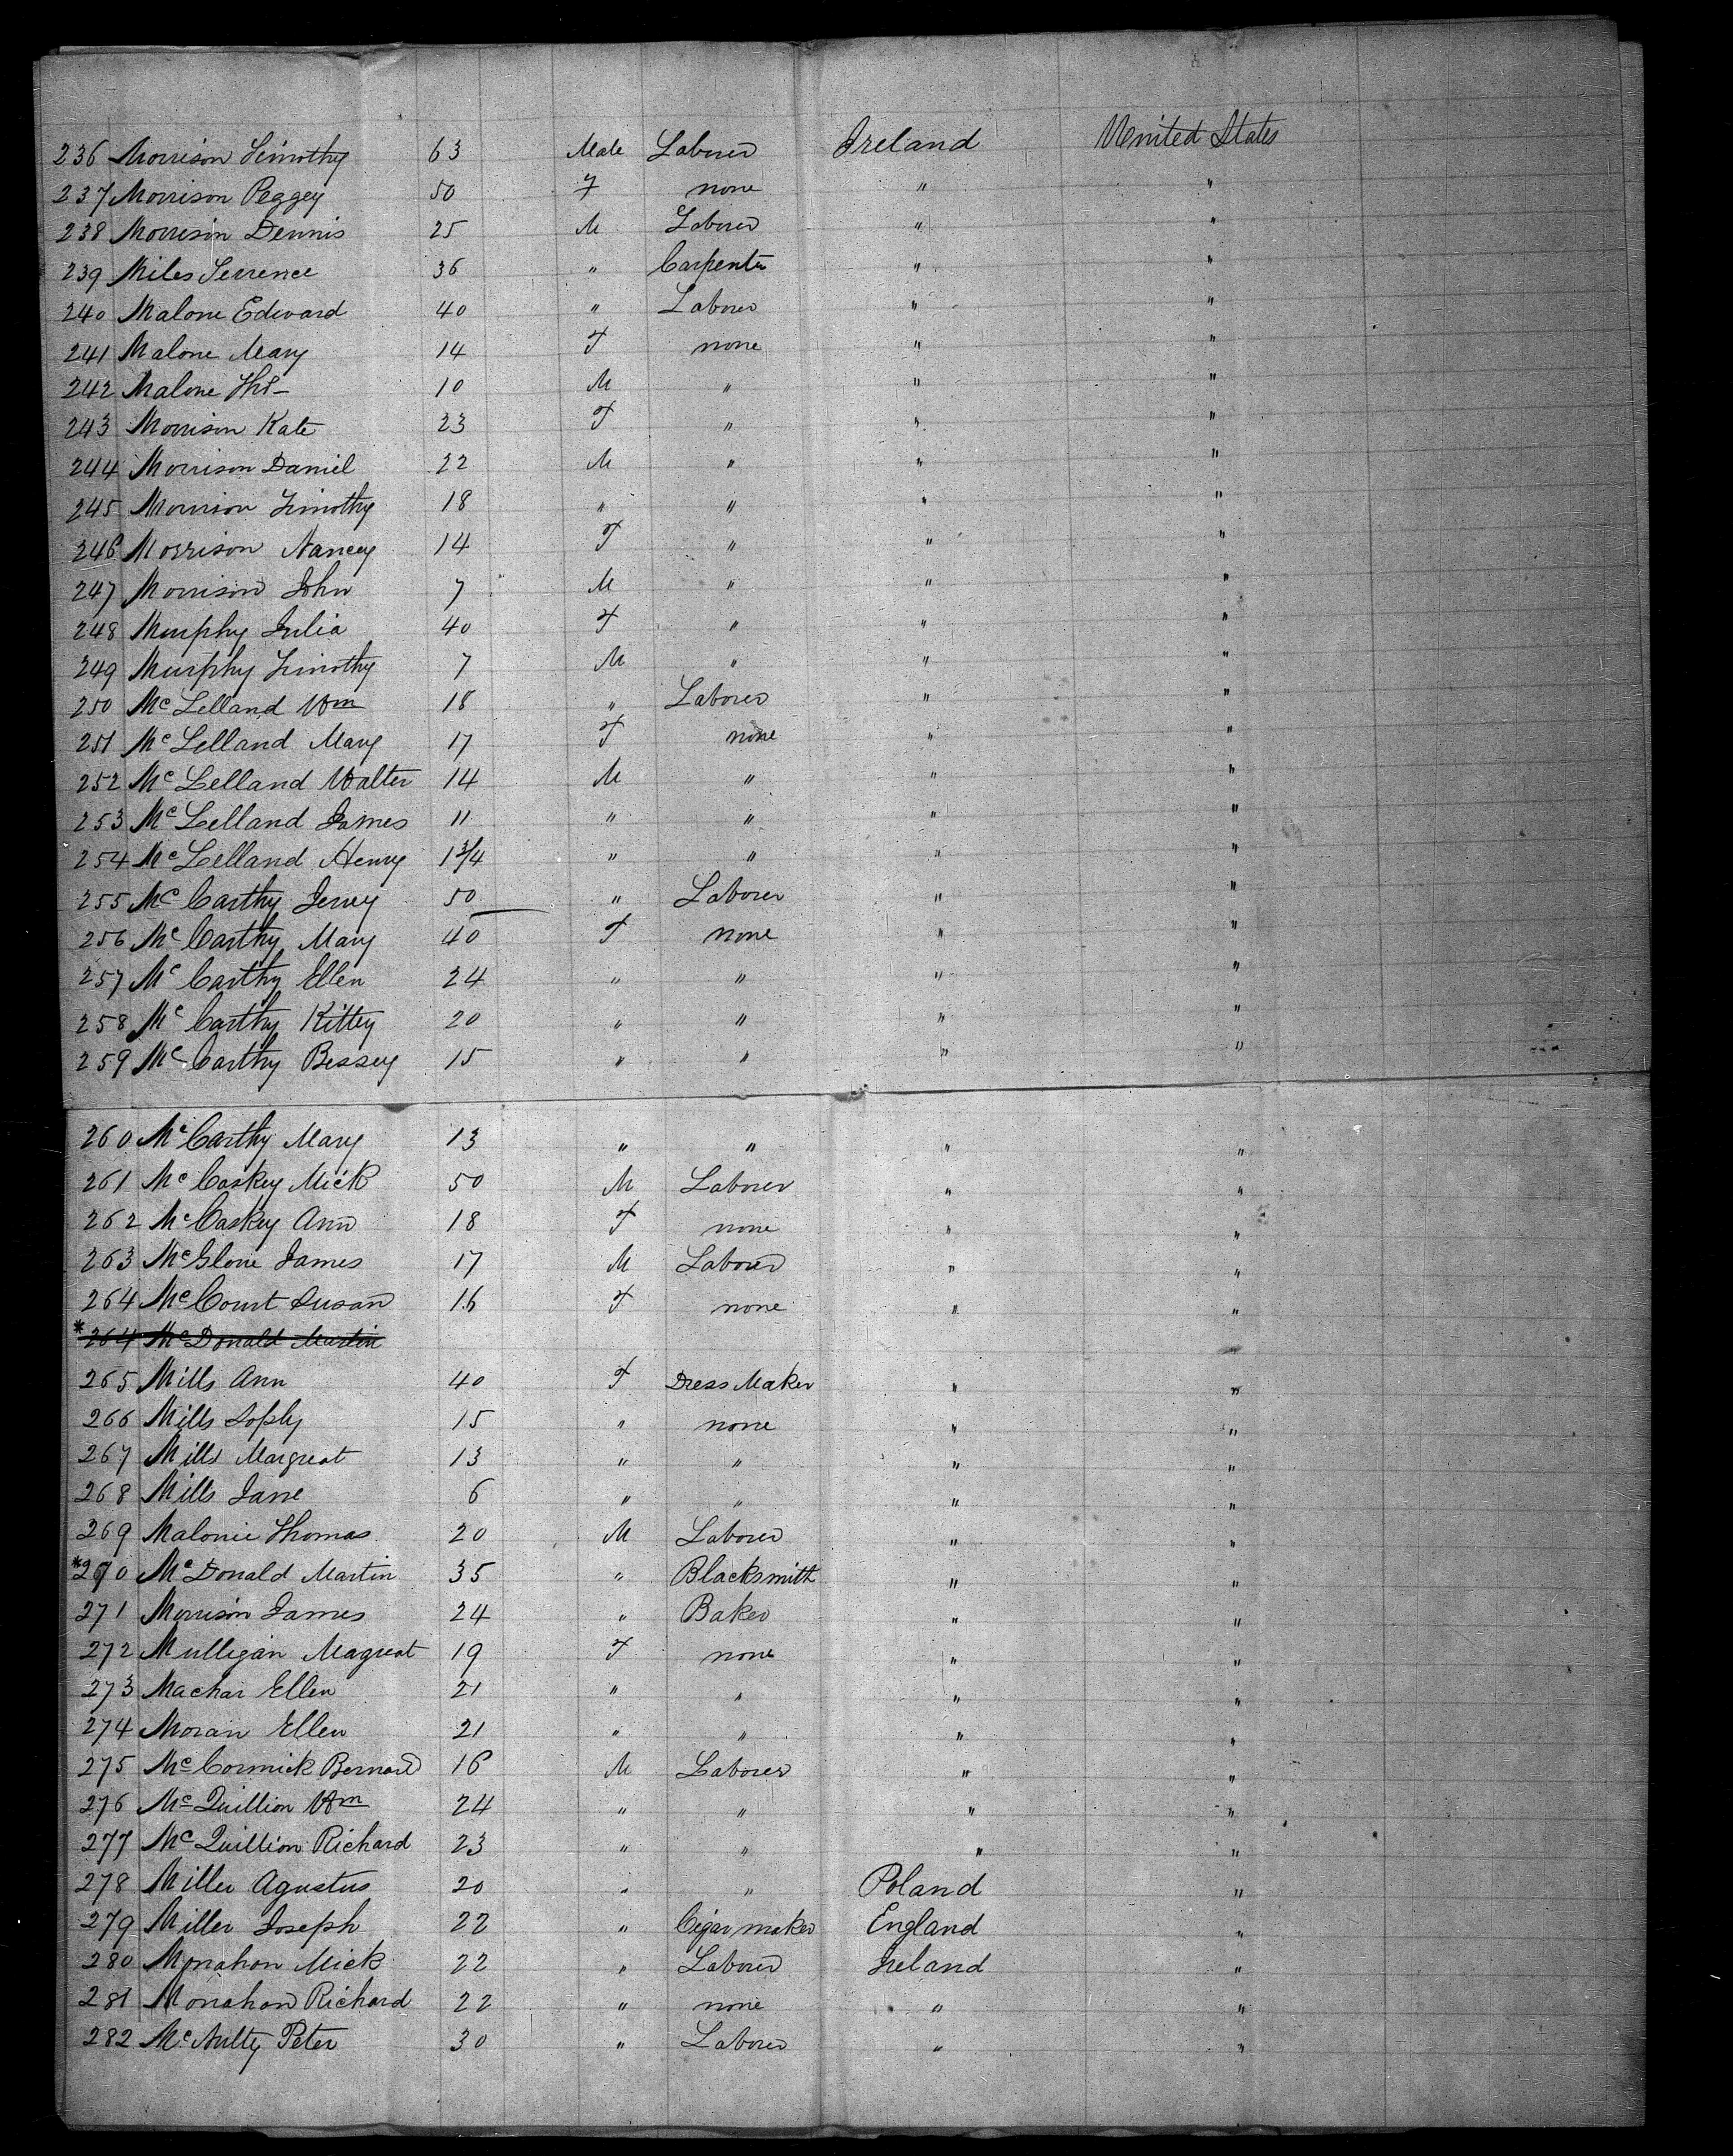 236 Morrison Timothy 63 Male Laborer Ireland Uenited States
237 Morrison Peggey 50 F none " "
238 Morrison Dennis 25 M Laborer " "
239 Miles Terrence 36 " Carpenter " "
240 Malone Edward 40 " Laborer " "
241 Malone Mary 14 F none " "
242 Malone Ths 10 M " " "
243 Morrison Kate 23 F " " "
244 Morrison Daniel 22 M " " "
245 Morrison Timothy 18 " " " "
246 Morrison Nancey 14 F " " "
247 Morrison John 7 M " " "
248 Murphy Julia 40 F " " "
249 Murphy Timothy 7 M " " "
250 Mc Lelland Wm 18 " Laborer " "
251 Mc Lelland Mary 17 F none " "
252 Mc Lelland Walter 14 M " " "
253 Mc Lelland James 11 " " " "
254 Mc Lelland Henry 1 3/4 " " " "
255 Mc Carthy Jerrey 50 " Laborer " "
256 Mc Carthy Mary 40 F none " "
257 Mc Carthy Ellen 24 " " " "
258 Mc Carthy Kittey 20 " " " "
259 Mc Carthy Bessey 15 " " " "
260 Mc Carthy Mary 13 " " " "
261 Mc Caskey Mick 50 M Laborer " "
262 Mc Caskey Ann 18 F none " "
263 Mc Glone James 17 M Laborer " "
264 Mc Court Susan 16 F none " "
* 264 Mc Donald Martin
265 Mills Ann 40 F Dress Maker " "
266 Mills Sophy 15 " none " "
267 Mills Margreat 13 " " " "
268 Mills Jane 6 " " " "
269 Malonie Thomas 20 M Laborer " "
* 270 Mc Donald Martin 35 " Blacksmith " "
271 Morrison James 24 " Baker " "
272 Mulligan Magreat 19 F none " "
273 Machar Ellen 21 " " " "
274 Moran Ellen 21 " " " "
275 Mc Cormick Bernard 16 M Laborer " "
276 Mc Quillion Wm 24 " " " "
277 Mc Quillion Richard 23 " " " "
278 Miller Agustus 20 " " Poland "
279 Miller Joseph 22 " Cigar maker England "
280 Monahon Mick 22 " Laborer Ireland "
281 Monahon Richard 22 " none " "
282 Mc Anlty Peter 30 " Laborer " "